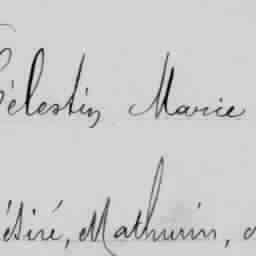 Célestin Marie
Désiré, Mathurin,